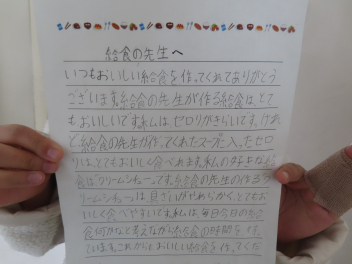 給食の先生へ
いつもおいしい給食を作ってくれてありがとう
ございます。給食の先生が作る給食は、とて
もおいしいです。私は、セロリがきらいです。けれ
ど、給食の先生が作ってくれたスープに入ったセロ
リは、とてもおいしく食べれます。私の好きな給
食は、クリームシチューです。給食の先生の作るク
リームシチューは、具ざいがやわらかく、とてもお
いしく食べやすいです。私は、毎日今日の給
食何かなと考えながら給食の時間を
これからもおいしい給食を作ってくだ